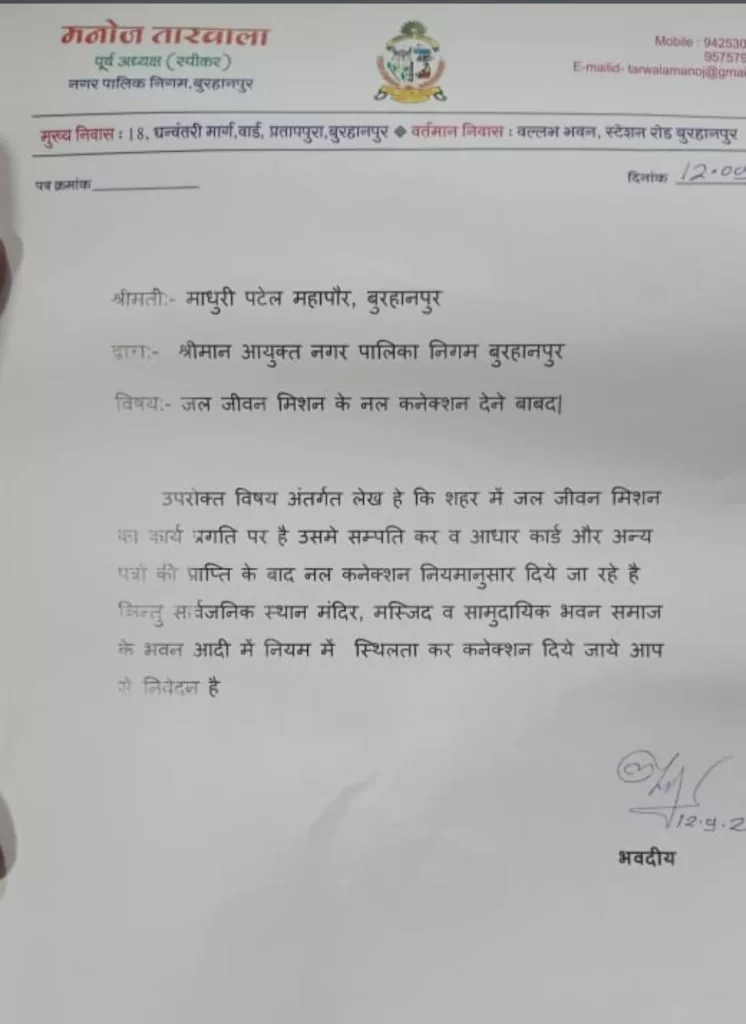 मनोज तारवाला
पूर्व अध्यक्ष (स्पीकर)
नगर पालिक निगम,बुरहानपुर
Mobile : 942530
957579
E-mailid- tarwalamanoj@gmai
मुख्य निवास : 18, धन्वंतरी मार्ग,वार्ड, प्रतापपुरा,बुरहानपुर ◆ वर्तमान निवास : वल्लभ भवन, स्टेशन रोड बुरहानपुर
पत्र क्रमांक
दिनांक 12.09
श्रीमती:- माधुरी पटेल महापौर, बुरहानपुर
द्वारा:- श्रीमान आयुक्त नगर पालिका निगम बुरहानपुर
विषय:- जल जीवन मिशन के नल कनेक्शन देने बाबद|
उपरोक्त विषय अंतर्गत लेख हे कि शहर में जल जीवन मिशन
का कार्य प्रगति पर है उसमे सम्पति कर व आधार कार्ड और अन्य
पत्रों की प्राप्ति के बाद नल कनेक्शन नियमानुसार दिये जा रहे है
किन्तु सार्वजनिक स्थान मंदिर, मस्जिद व सामुदायिक भवन समाज
के भवन आदी में नियम में स्थिलता कर कनेक्शन दिये जाये आप
से निवेदन है
12.9.2
भवदीय